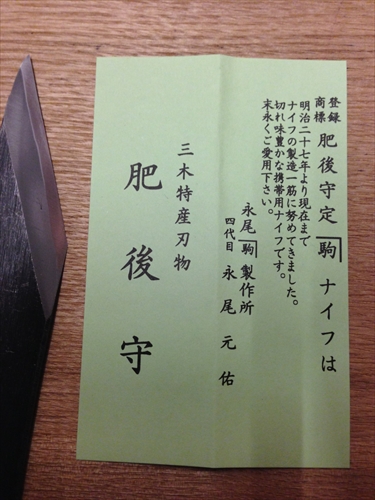 登録商標 肥後守定駒ナイフは
明治二十七年より現在まで
ナイフの製造一筋に努めてきました。
切れ味豊かな携帯用ナイフです。
末永くご愛用下さい。
永尾駒製作所
四代目 永尾元佑
三木特産刃物
肥後守